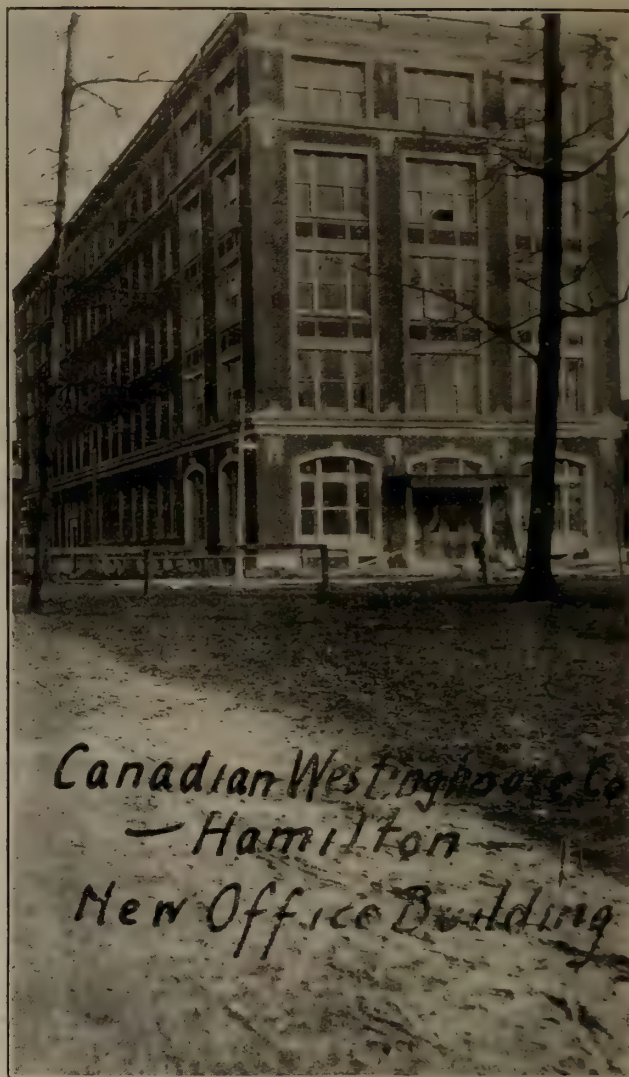 Canadian Westinghouse Co
— Hamilton
New Office Building